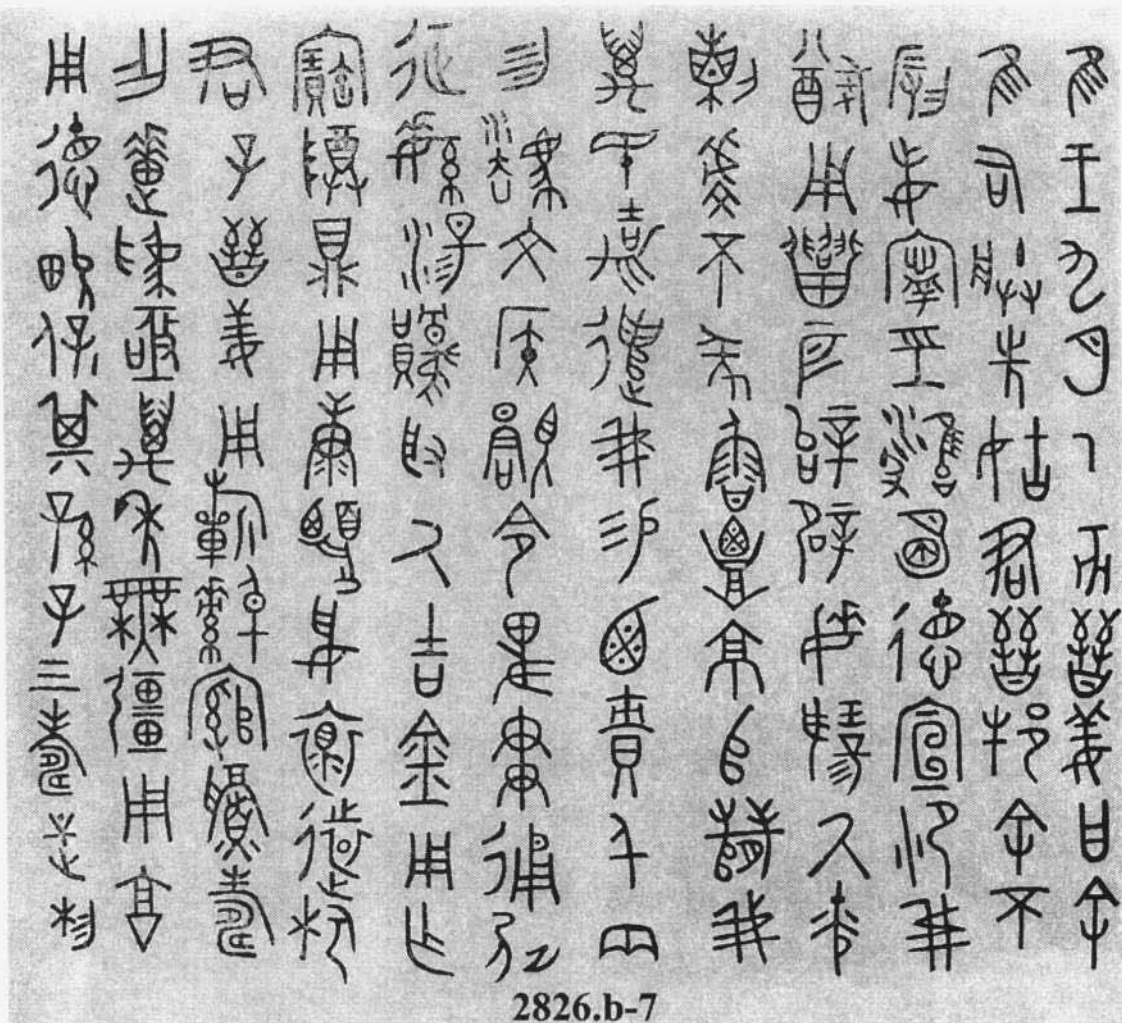 隹王九月乙亥晉姜曰余
隹司朕先姑君晉邦余不
叚妄寧巠雝明德宣卹我
猷用召匹辝辟敏揚厥光
剌虔不㒸魯覃京𠂤辥我
萬民嘉遣我易鹵責千兩
勿灋文侯顯令卑貫通弘
征繁湯取厥吉金用乍
寶尊鼎用康妥褱遠
君子晉姜用旂綽綰眉壽
乍疐為亟萬年無疆用享
用德畯保其孫子三壽是利
2826.b-7